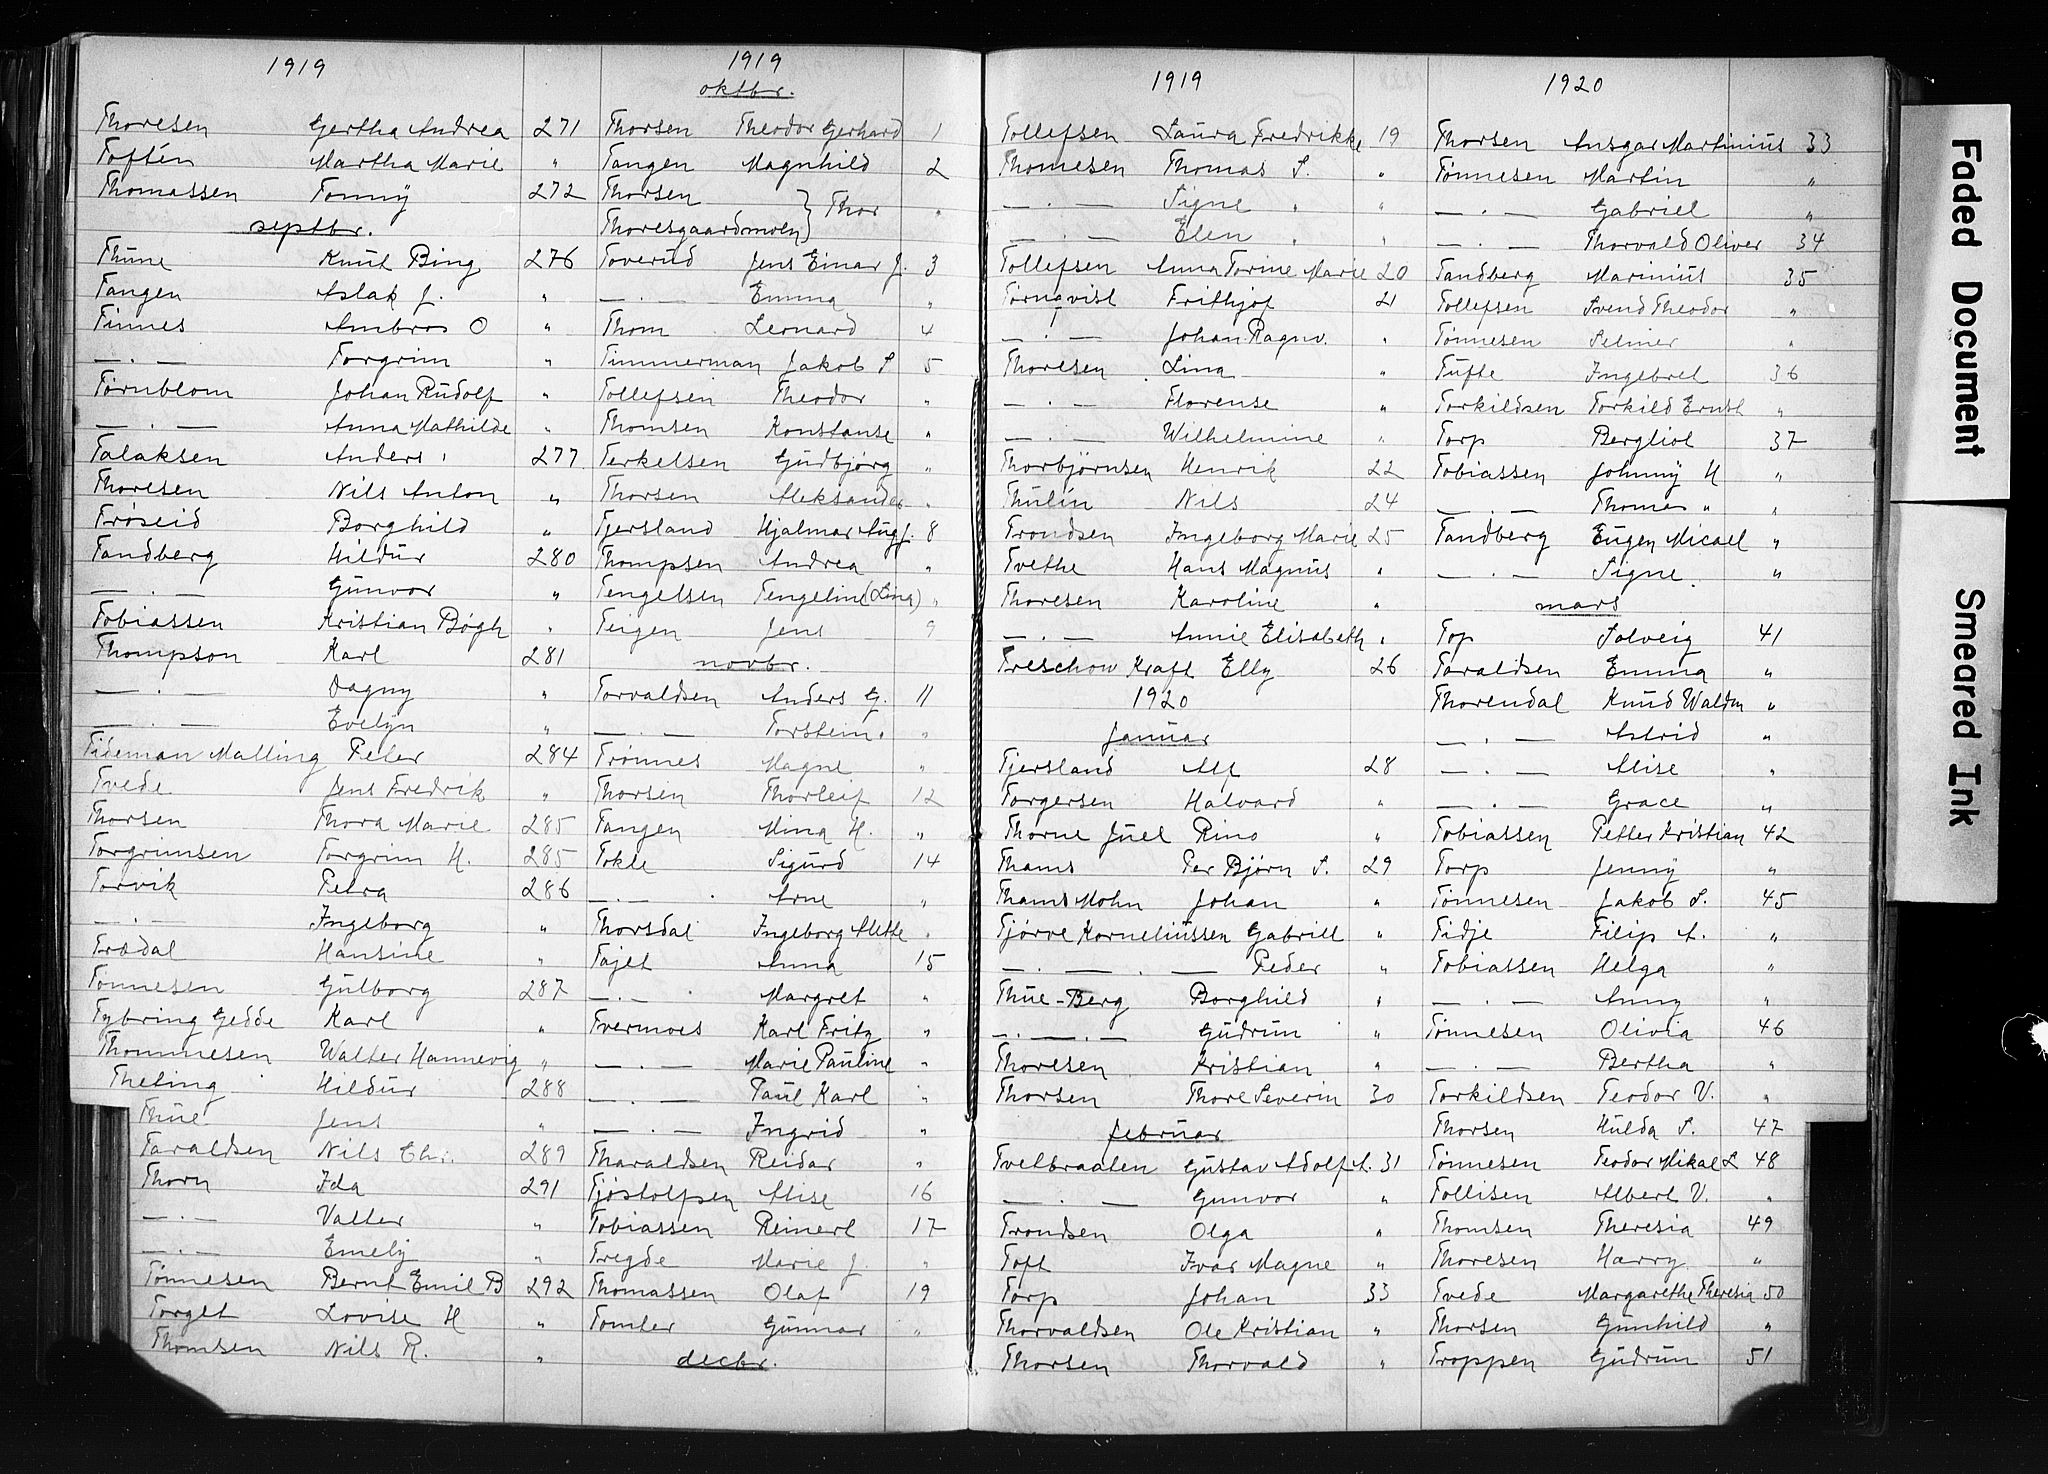 1919
Thoresen Gertha Andrea 271
Toftén Martha Marie "
Thomassen Tonny 272
septbr.
Thune Knut Bing 276
Tangen Aslak J. "
Tinnes Ambros O "
— . — Torgrim "
Törnblom Johan Rudolf "
— . — Anna Mathilde "
Talaksen Anders 277
Thoresen Nils Anton "
Trøseid Borghild "
Tandberg Hildur 280
— . — Gunvor "
Tobiassen Kristian Bögh "
Thompson Karl 281
— . — Dagny "
— . — Evelyn "
Tideman Malling Peter 284
Tvede Jens Fredrik "
Thorsen Thora Marie 285
Torgrimsen Torgrim H. 285
Torvik Petra 286
— . — Ingeborg "
Trædal Hansine "
Tønnesen Gulborg 287
Tybring Gedde Karl "
Thommesen Walter Hannevig "
Theting Hildur 288
Thue Jens "
Taraldsen Nils Chr. 289
Thorn Ida 291
— . — Valter "
— . — Emely "
Tønnesen Bernt Emil B 292
Torget Lovise H "
Thomsen Nils R. "
1919
oktbr.
Thorsen Theodor Gerhard 1
Tangen Magnhild 2
Thorsen
Thoresgaardmoen } Thor "
Toverud Jens Einar J. 3
— . — Emma "
Thom Leonard 4
Timmerman Jakob S 5
Tollefsen Theodor "
Thomsen Konstanse "
Terkelsen Gudbjørg "
Thorsen Aleksander "
Tjersland Hjalmar Aug. 8
Thompsen Andrea "
Tengelsen Tengelin (Lina) "
Teigen Jens 9
novbr.
Torvaldsen Anders G. 11
— . — Torstein. "
Trønnes Magne "
Thorsen Thorleif 12
Tangen Mina H. "
Tokle Sigurd 14
— . — Arne "
Thorsdal Ingeborg Alette "
Tajet Anna 15
— . — Margret "
Tvermoes Karl Fritz "
— . — Marie Pauline "
— . — Paul Karl "
— . — Ingrid "
Tharaldsen Reidar "
Tjøstolfsen Alise 16
Tobiassen Reinert 17
Tregde Marie J. "
Thomassen Olaf 19
Tomter Gunnar "
decbr.
1919
Tollefsen Laura Fredrikke 19
Thomesen Thomas S. "
— . — Signe " "
— . — Elen " "
Tollefsen Anna Torine Marie 20
Törnqvist Frithjof 21
— . — Johan Ragnv. "
Thoresen Lina "
— . — Florense "
— . — Wilhelmine "
Thorbjörnsen Henrik 22
Thulin Nils 24
Trondsen Ingeborg Marie 25
Tvethe Hans Magnus "
Thoresen Karoline "
— . — Annie Elisabeth "
Treschow Kraft Elly 26
1920
Januar
Tjersland Alf 28
Torgersen Halvard "
Thorne Juel Rino "
Thams Per Bjørn S. 29
Thams Mohn Johan "
Tjörve Korneliussen Gabriel "
— . — . — Peder "
Thue-Berg Borghild "
— . — . — Gudrun "
Thoresen Kristian "
Thorsen Thore Severin 30
februar
Tvetbraaten Gustav Adolf A. 31
— . — Gunvor "
Trondsen Olga "
Toft Ivar Magne "
Torp Johan 33
Thorvaldsen Ole Kristian "
Thorsen Thorvald "
1920
Thorsen Ansgar Martinius 33
Tønnesen Martin "
— . — Gabriel "
— . — Thorvald Oliver 34
Tandberg Marinius 35
Tollefsen Svend Theodor "
Tønnesen Selmer "
Tufte Ingebret 36
Torkildsen Torkild Ernst "
Torp Bergliot 37
Tobiassen Johnny H "
— . — Thomas " "
Tandberg Eugen Micael "
— . — Signe. "
mars
Top Solveig 41
Taraldsen Emma "
Thorendal Knud Waldm "
— . — Astrid "
— . — Alise "
— . — Grace "
Tobiassen Petter Kristian 42
Torp Jenny "
Tønnesen Jakob S. 45
Tidje Filip A. "
Tobiassen Helga "
— . — Anny "
Tønnesen Olivia 46
— . — Bertha "
Torkildsen Teodor V. "
Thorsen Hulda S. 47
Tønnesen Teodor Mikal L 48
Tollisen Albert V. "
Thomsen Theresia 49
Thoresen Harry "
Tvede Margarethe Theresia 50
Thorsen Gunhild "
Troppen Gudrun 51
Faded Document
Smeared Ink